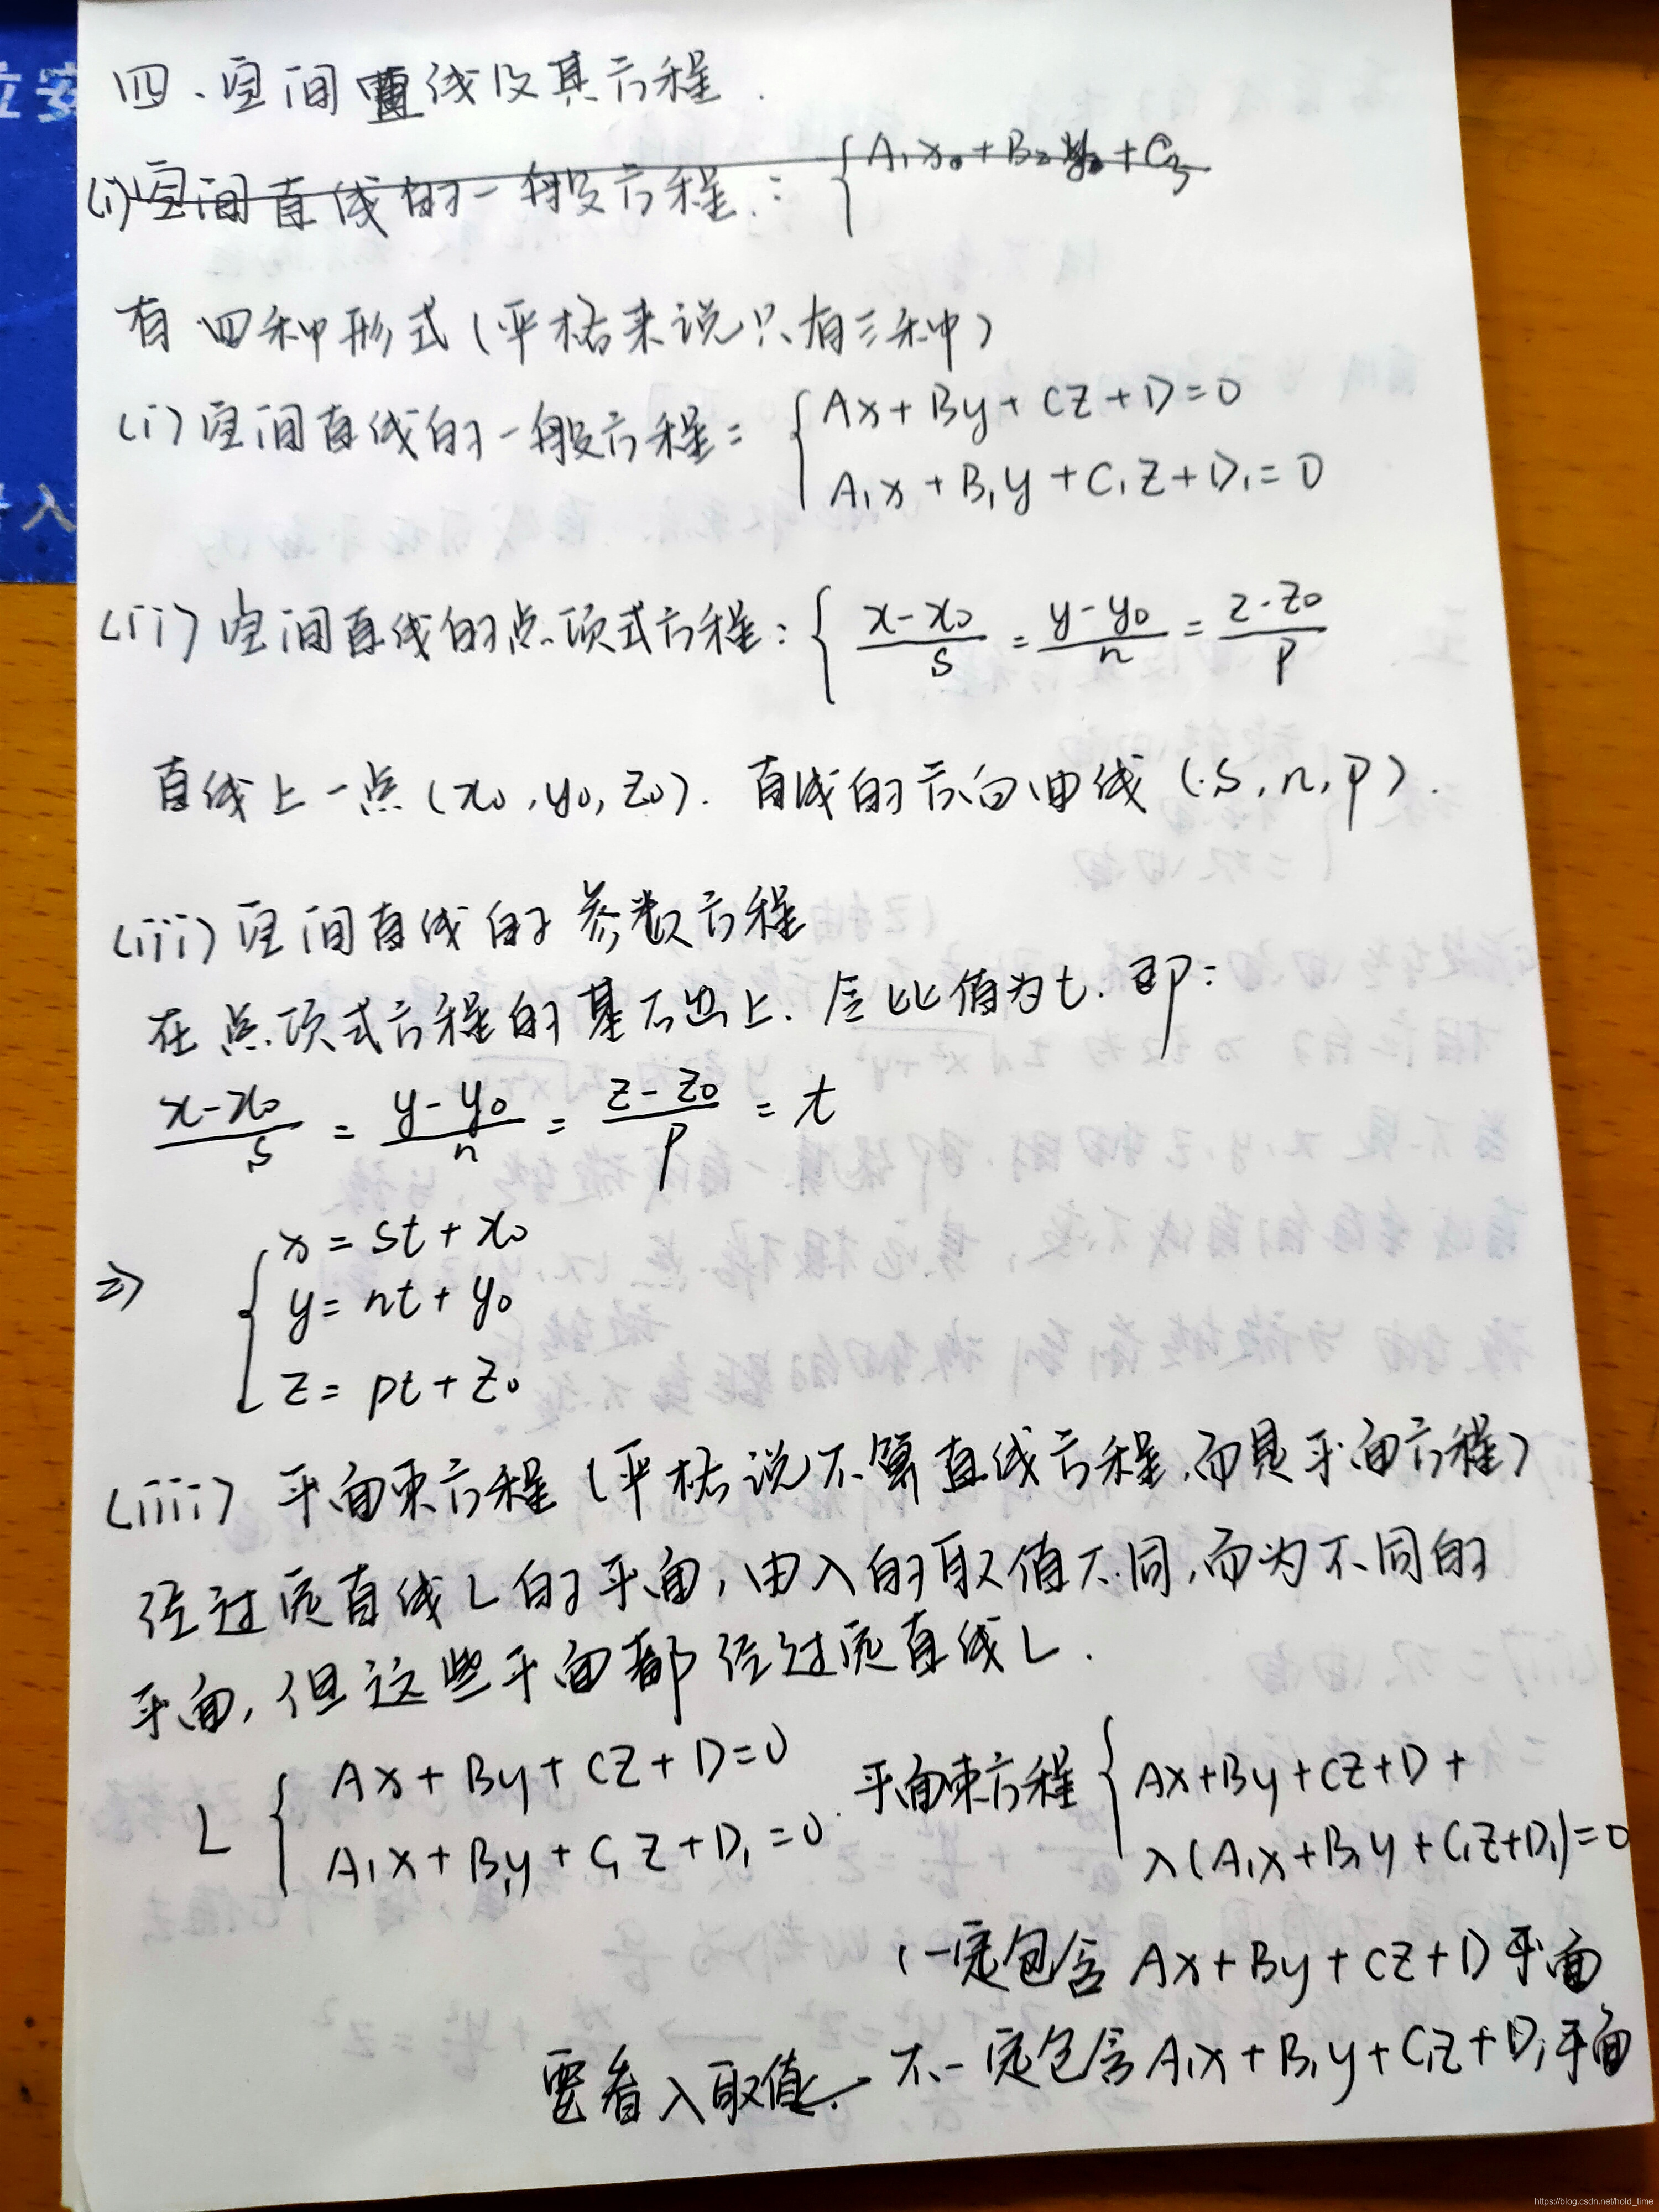 四、空间直线及其方程.
(i) 空间直线的一般方程: { A₁x₀+B₂y₀+C₃
有四种形式(严格来说只有三种)
(i) 空间直线的一般方程: { Ax+By+CZ+D=0
A₁x+B₁y+C₁Z+D₁=0
(ii) 空间直线的点项式方程: { (x-x₀)/s = (y-y₀)/n = (z-z₀)/p
直线上一点(x₀,y₀,z₀). 直线的方向曲线(s,n,p).
(iii) 空间直线的参数方程
在点项式方程的基础上.令比值为t.即:
(x-x₀)/s = (y-y₀)/n = (z-z₀)/p = t
⇒ { x=st+x₀
y=nt+y₀
z=pt+z₀
(iiii) 平面束方程(严格说不算直线方程,而是平面方程)
经过定直线L的平面,由λ的取值不同,而为不同的
平面,但这些平面都经过定直线L.
L { Ax+By+CZ+D=0
A₁x+B₁y+C₁Z+D₁=0. 平面束方程 { Ax+By+CZ+D+
λ(A₁x+B₁y+C₁Z+D₁)=0
一定包含Ax+By+CZ+D平面
要看λ取值. 不一定包含A₁x+B₁y+C₁Z+D₁平面
立安
入
https://blog.csdn.net/hold_time